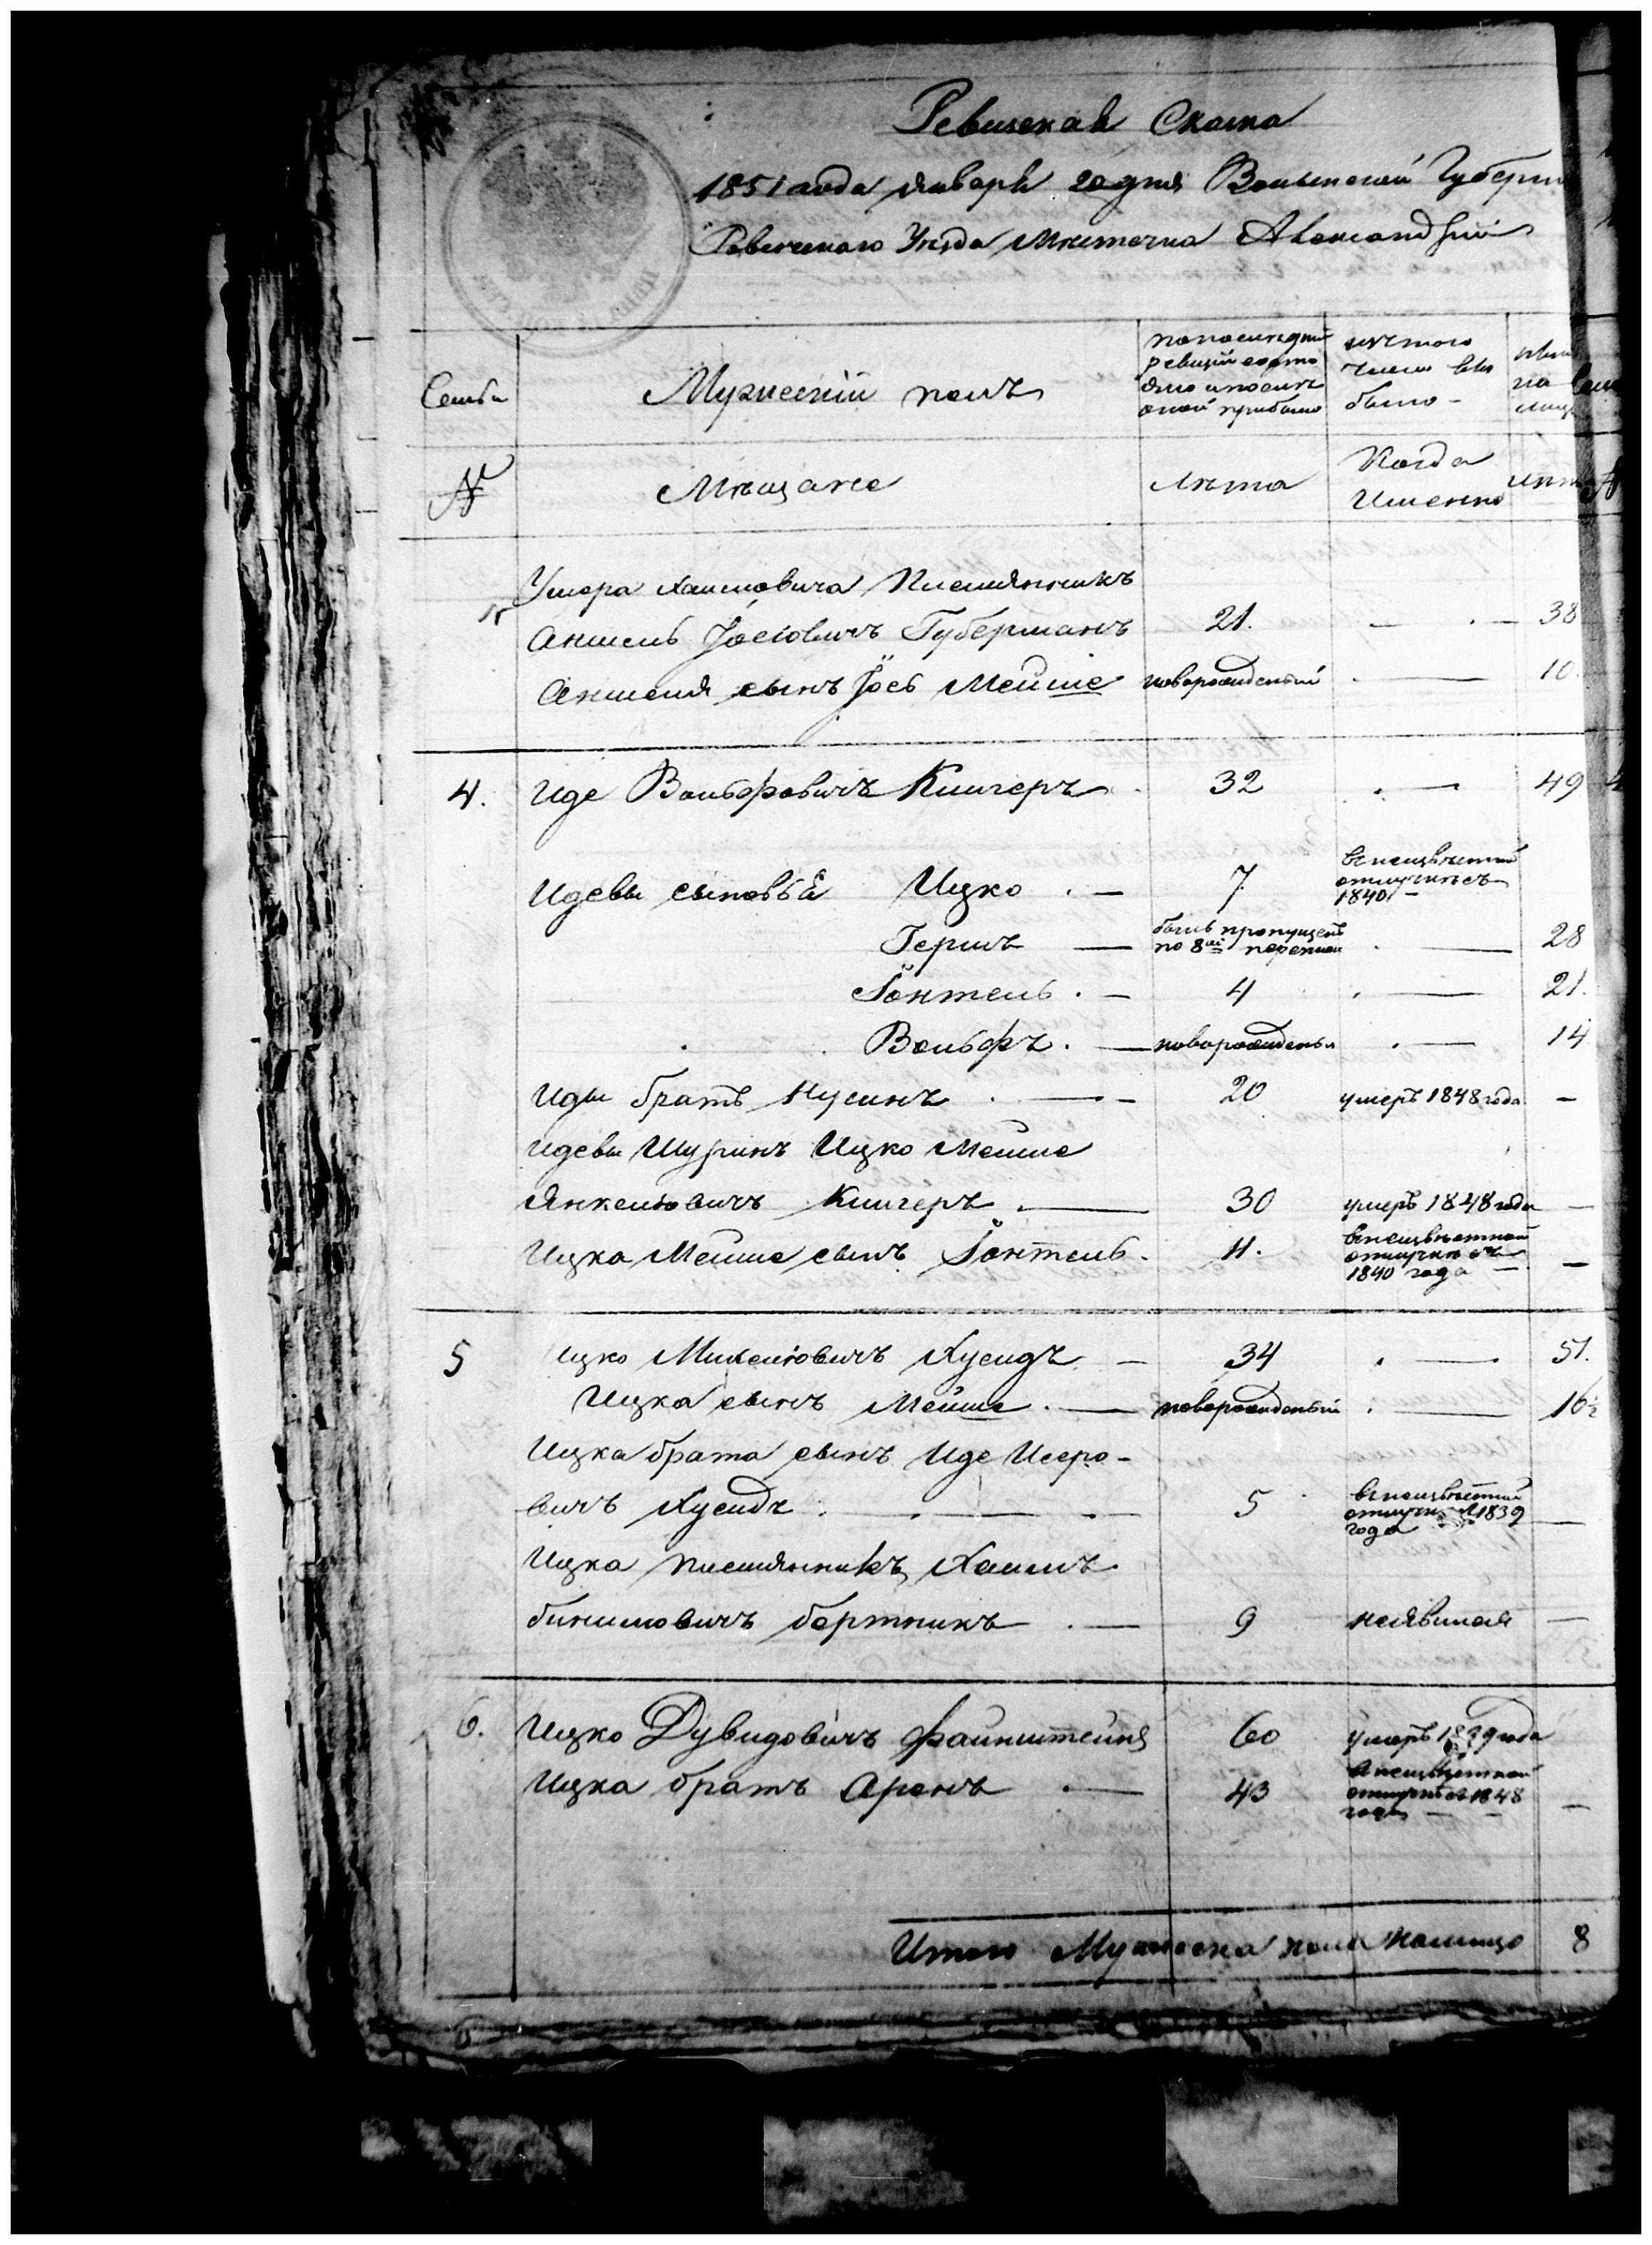 Ревизская Скаска
1851 года января 20 дня Волынской Губерни
Ровенскаго Уезда Местечка Александріи
Семьи
Мужескій полъ
по последней
ревизіи состо
яло и после
оной прибыло
изъ того
числа вы
было -
на
лицо
№
Мещане
Лета
Когда
Именно
Умера Хаимовича Племянникъ
Аншель Іосіовичъ Губерманъ 21. — 38
Аншеля сынъ Іось Мейше новорожденный — 10.
4. Иде Вольфовичъ Кличеръ 32 — 49
Идевы сыновья Ицко . — 7 въ неизвестной
отлучке съ
1840 -
Гершъ — былъ пропущенъ
по 8ой переписи — 28
Іонтель . — 4 — 21.
Вольфъ . — новорожденны — 14
Иды братъ Нусинъ . — 20 умеръ 1848 года —
Идевы Шуринъ Ицко Мейше
Янкеліовичъ Кличеръ . — 30 умеръ 1848 года —
Ицка Мейше сынъ Іонтель . 11. въ неизвестной
отлучке съ
1840 года — —
5 Ицко Михеліовичъ Хусидъ — 34 — 51.
Ицка сынъ Мейше . — новорожденный — 16½
Ицка брата сынъ Иде Исеро-
вичъ Хусидъ . — 5 въ неизвестной
отлучке 1839
года —
Ицка племянникъ Хаимъ
бинимовичъ бортникъ . — 9 неявился —
6. Ицко Дувидовичъ Файнштейнъ 60 умеръ 1839 года
Ицка братъ Аронъ — 43 в неизвестной
отлучке съ 1848
года — —
Итого Мужеска пола налицо 8